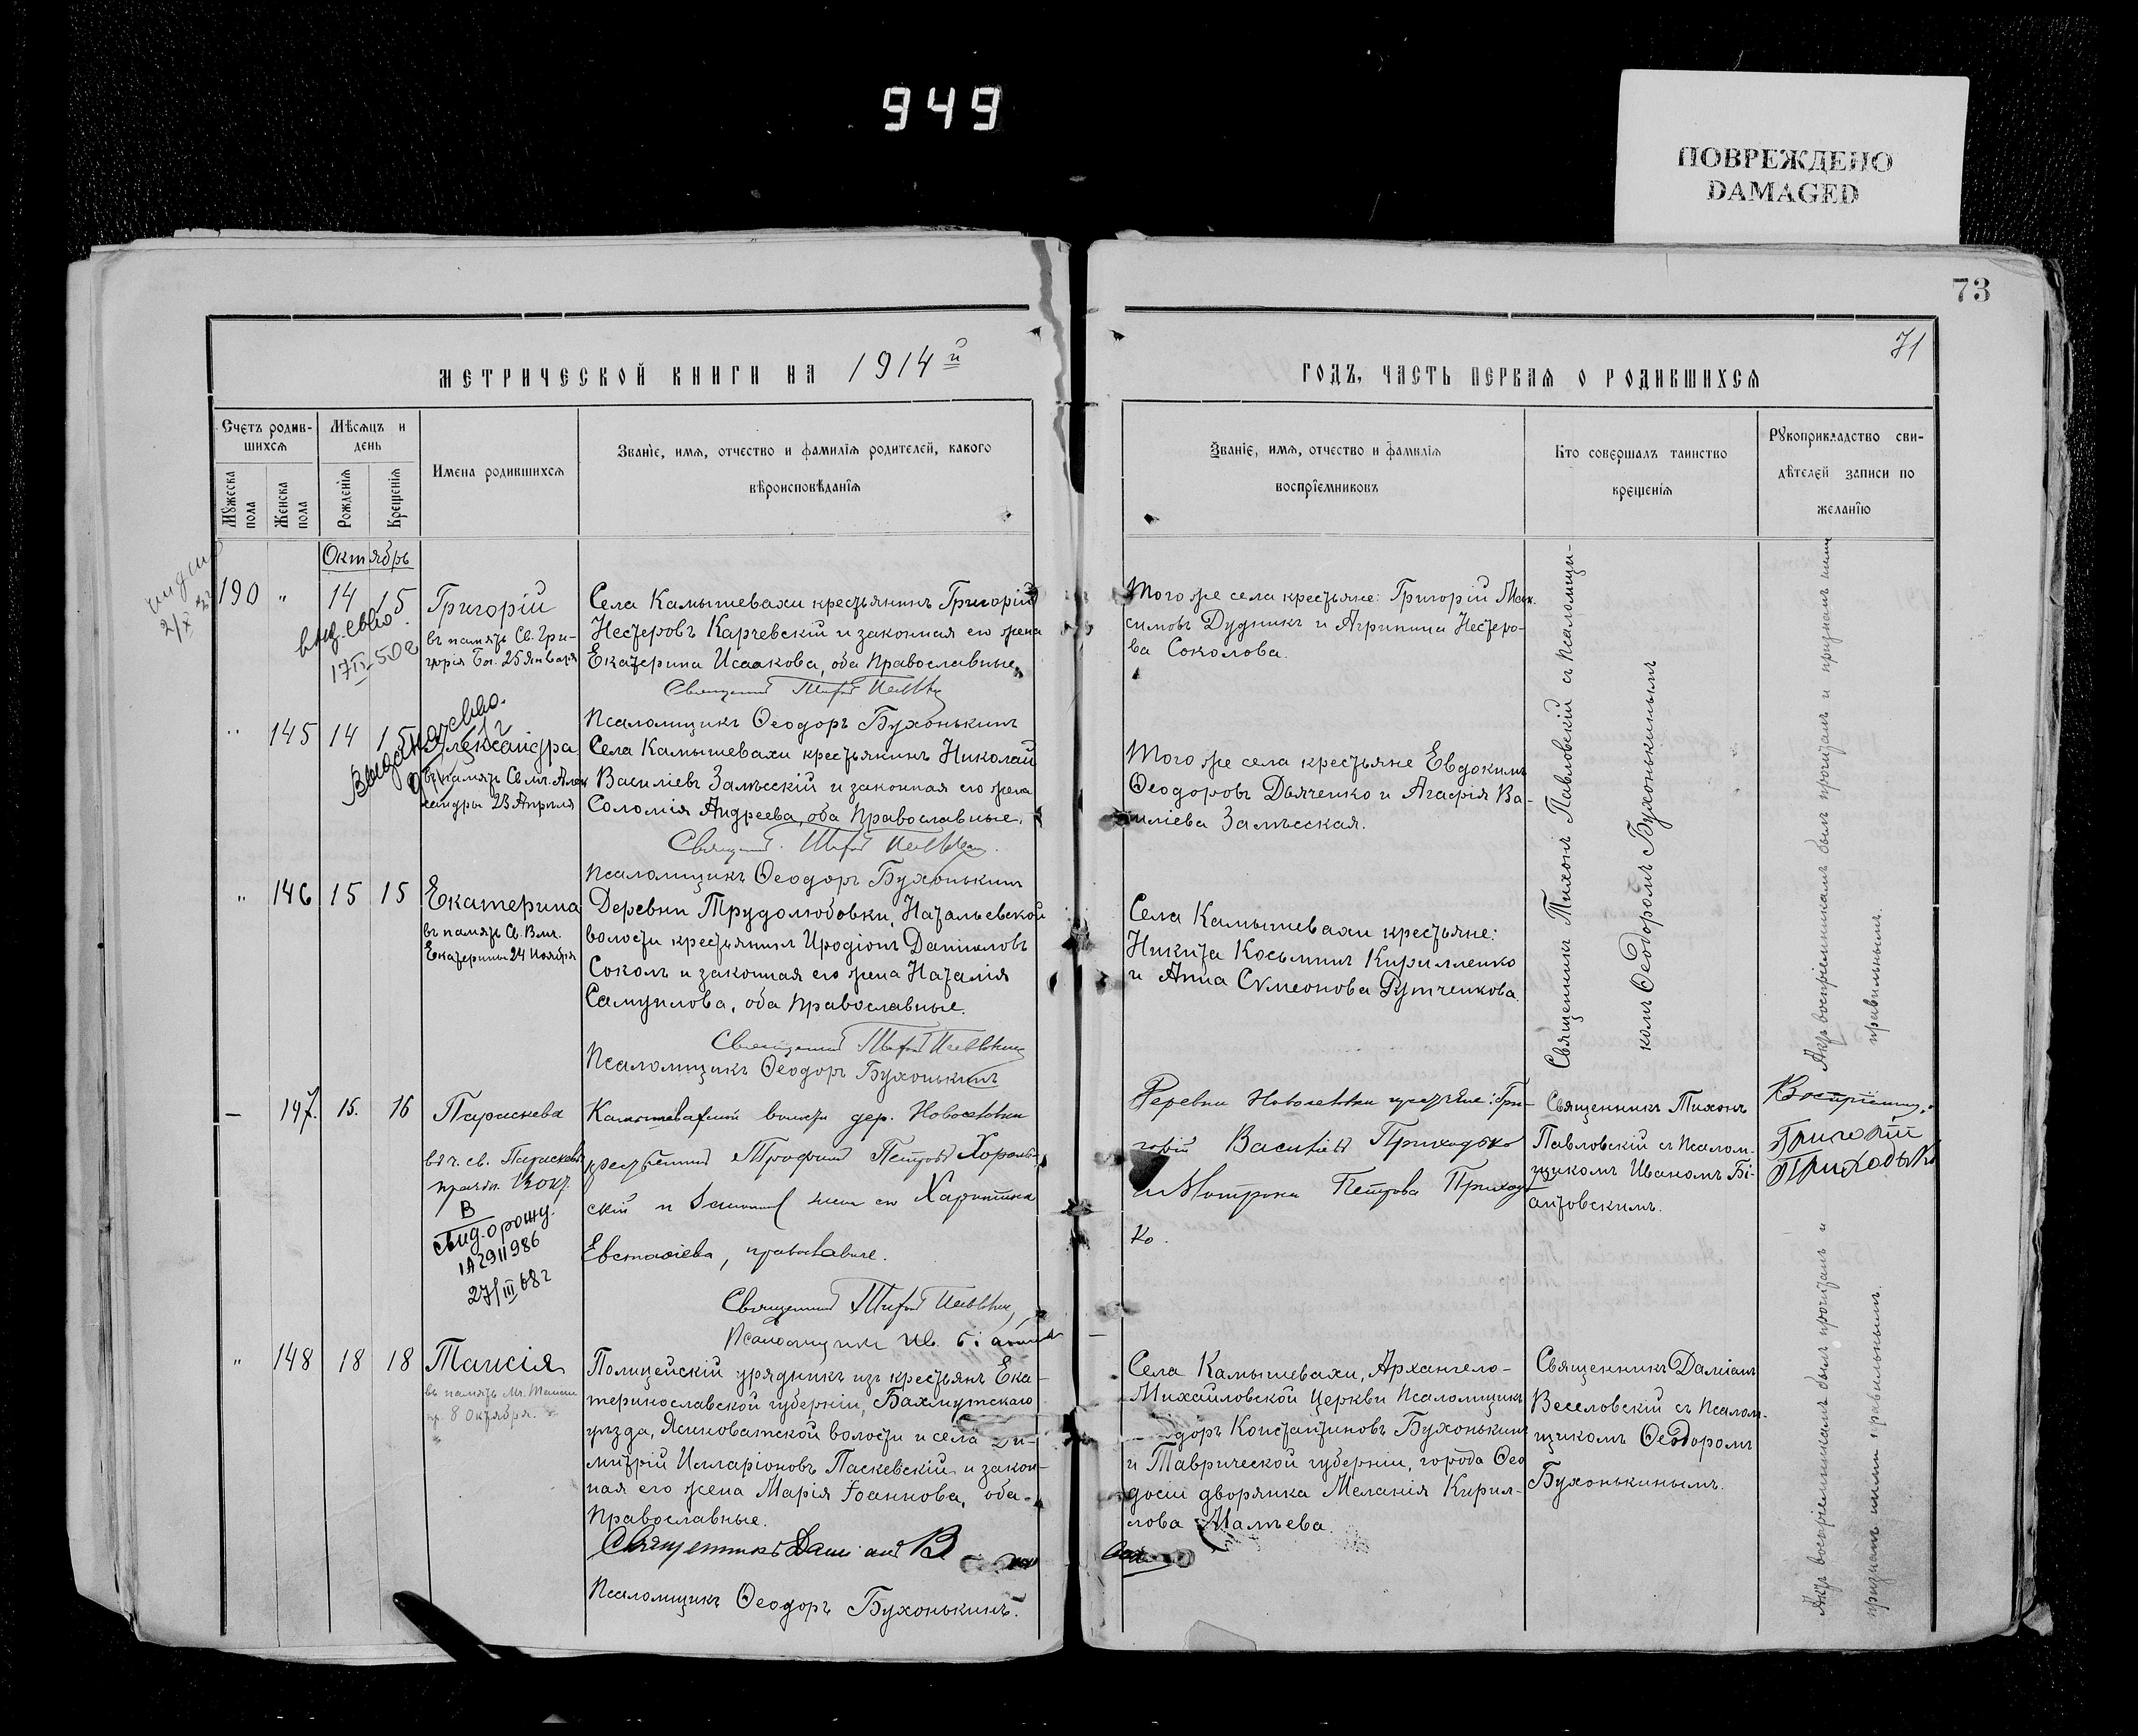 949
ПОВРЕЖДЕНО
DAMAGED
73
71
МЕТРИЧЕСКОЙ КНИГИ НА 1914й
ГОДЪ, ЧАСТЬ ПЕРВАЯ О РОДИВШИХСЯ
Счетъ родив-
шихся
Мѣсяцъ и
день
Мужеска
пола
Женска
пола
Рожденія
Крещенія
Имена родившихся
Званіе, имя, отчество и фамилія родителей, какого
вѣроисповѣданія
Званіе, имя, отчество и фамилія
воспріемниковъ
Кто совершалъ таинство
крещенія
Рукоприкладство сви-
дѣтелей записи по
желанію
Октябрь
190 " 14 15
Григорій
въ память Св. Гри-
горія Бог. 25 Января
Села Камышевахи крестьянинъ Григорій
Нестеровъ Карчевскій и законная его жена
Екатерина Исаакова, оба Православные.
Псаломщикъ Ѳеодоръ Бухонькинъ
Того же села крестьяне: Григорій Мак-
симовъ Дудникъ и Агрипина Нестеро-
ва Соколова.
Священникъ Тихонъ Павловскій съ псаломщи-
комъ Ѳеодоромъ Бухонькинымъ
Актъ воспріемникамъ былъ прочитанъ и признанъ ими
правильнымъ.
" 145 14 15
Александра
въ память Св. мч. Алек
сандры 23 Апрѣля
Села Камышевахи крестьянинъ Николай
Василіевъ Залѣсскій и законная его жена
Соломія Андреева, оба Православные.
Псаломщикъ Ѳеодоръ Бухонькинъ
Того же села крестьяне Евдокимъ
Ѳеодоровъ Дьяченко и Агафія Ва-
силіева Залѣсская.
" 146 15 15
Екатерина
въ память Св. Влм.
Екатерины 24 Ноября
Деревни Трудолюбовки, Натальевской
волости крестьянинъ Иродіонъ Даниловъ
Соколъ и законная его жена Наталія
Самуилова, оба Православные.
Псаломщикъ Ѳеодоръ Бухонькинъ
Села Камышевахи крестьяне:
Никита Косьминъ Кирилленко
и Анна Сѵмеонова Рутченкова.
— 147. 15. 16
Параскева
В
свид. о рожд.
1А2911986
27/III 68 г
Камышевахской волости дер. Новоселовки
Трофимъ Петровъ Хороль-
скій и законная жена его Харитина
Евстафіева, православные.
Деревни Новоселовки крестьяне: Гри-
горій Васильевъ Приходько
и Мотрона Петрова Приходь
ко.
Священникъ Тихонъ
Павловскій съ псалом-
щикомъ Иваномъ Бі-
антовскимъ.
Григорій
Приходько
" 148 18 18
Таисія
въ память Мч. Таисіи
пр. 8 Октября.
Полицейскій урядникъ изъ крестьянъ Ека-
теринославской губерніи, Бахмутскаго
уѣзда, Ясиноватской волости и села Ди-
митрій Иларіоновъ Паскевскій и закон-
ная его жена Марія Іоаннова, оба
Православные.
Псаломщикъ Ѳеодоръ Бухонькинъ.
Села Камышевахи, Архангело-
Михайловской Церкви Псаломщикъ
Константиновъ Бухонькинъ
и Таврической губерніи, города Ѳео
досіи дворянка Меланія Кирил-
лова
Священникъ Даміанъ
Веселовскій съ псалом-
щикомъ Ѳеодоромъ
Бухонькинымъ.
Актъ воспріемникамъ былъ прочитанъ и
признанъ ими правильнымъ.